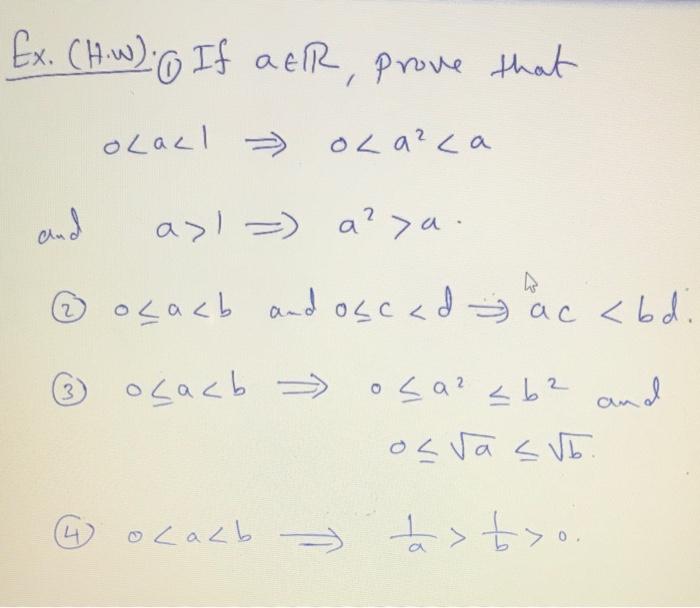 Ex. (H.W): ① If a ∈ ℝ, prove that
0 < a < 1 ⇒ 0 < a² < a
and a > 1 ⇒ a² > a.
② 0 ≤ a < b and 0 ≤ c < d ⇒ ac < bd.
③ 0 ≤ a < b ⇒ 0 ≤ a² ≤ b² and
0 ≤ √a ≤ √b.
④ 0 < a < b ⇒ 1/a > 1/b > 0.